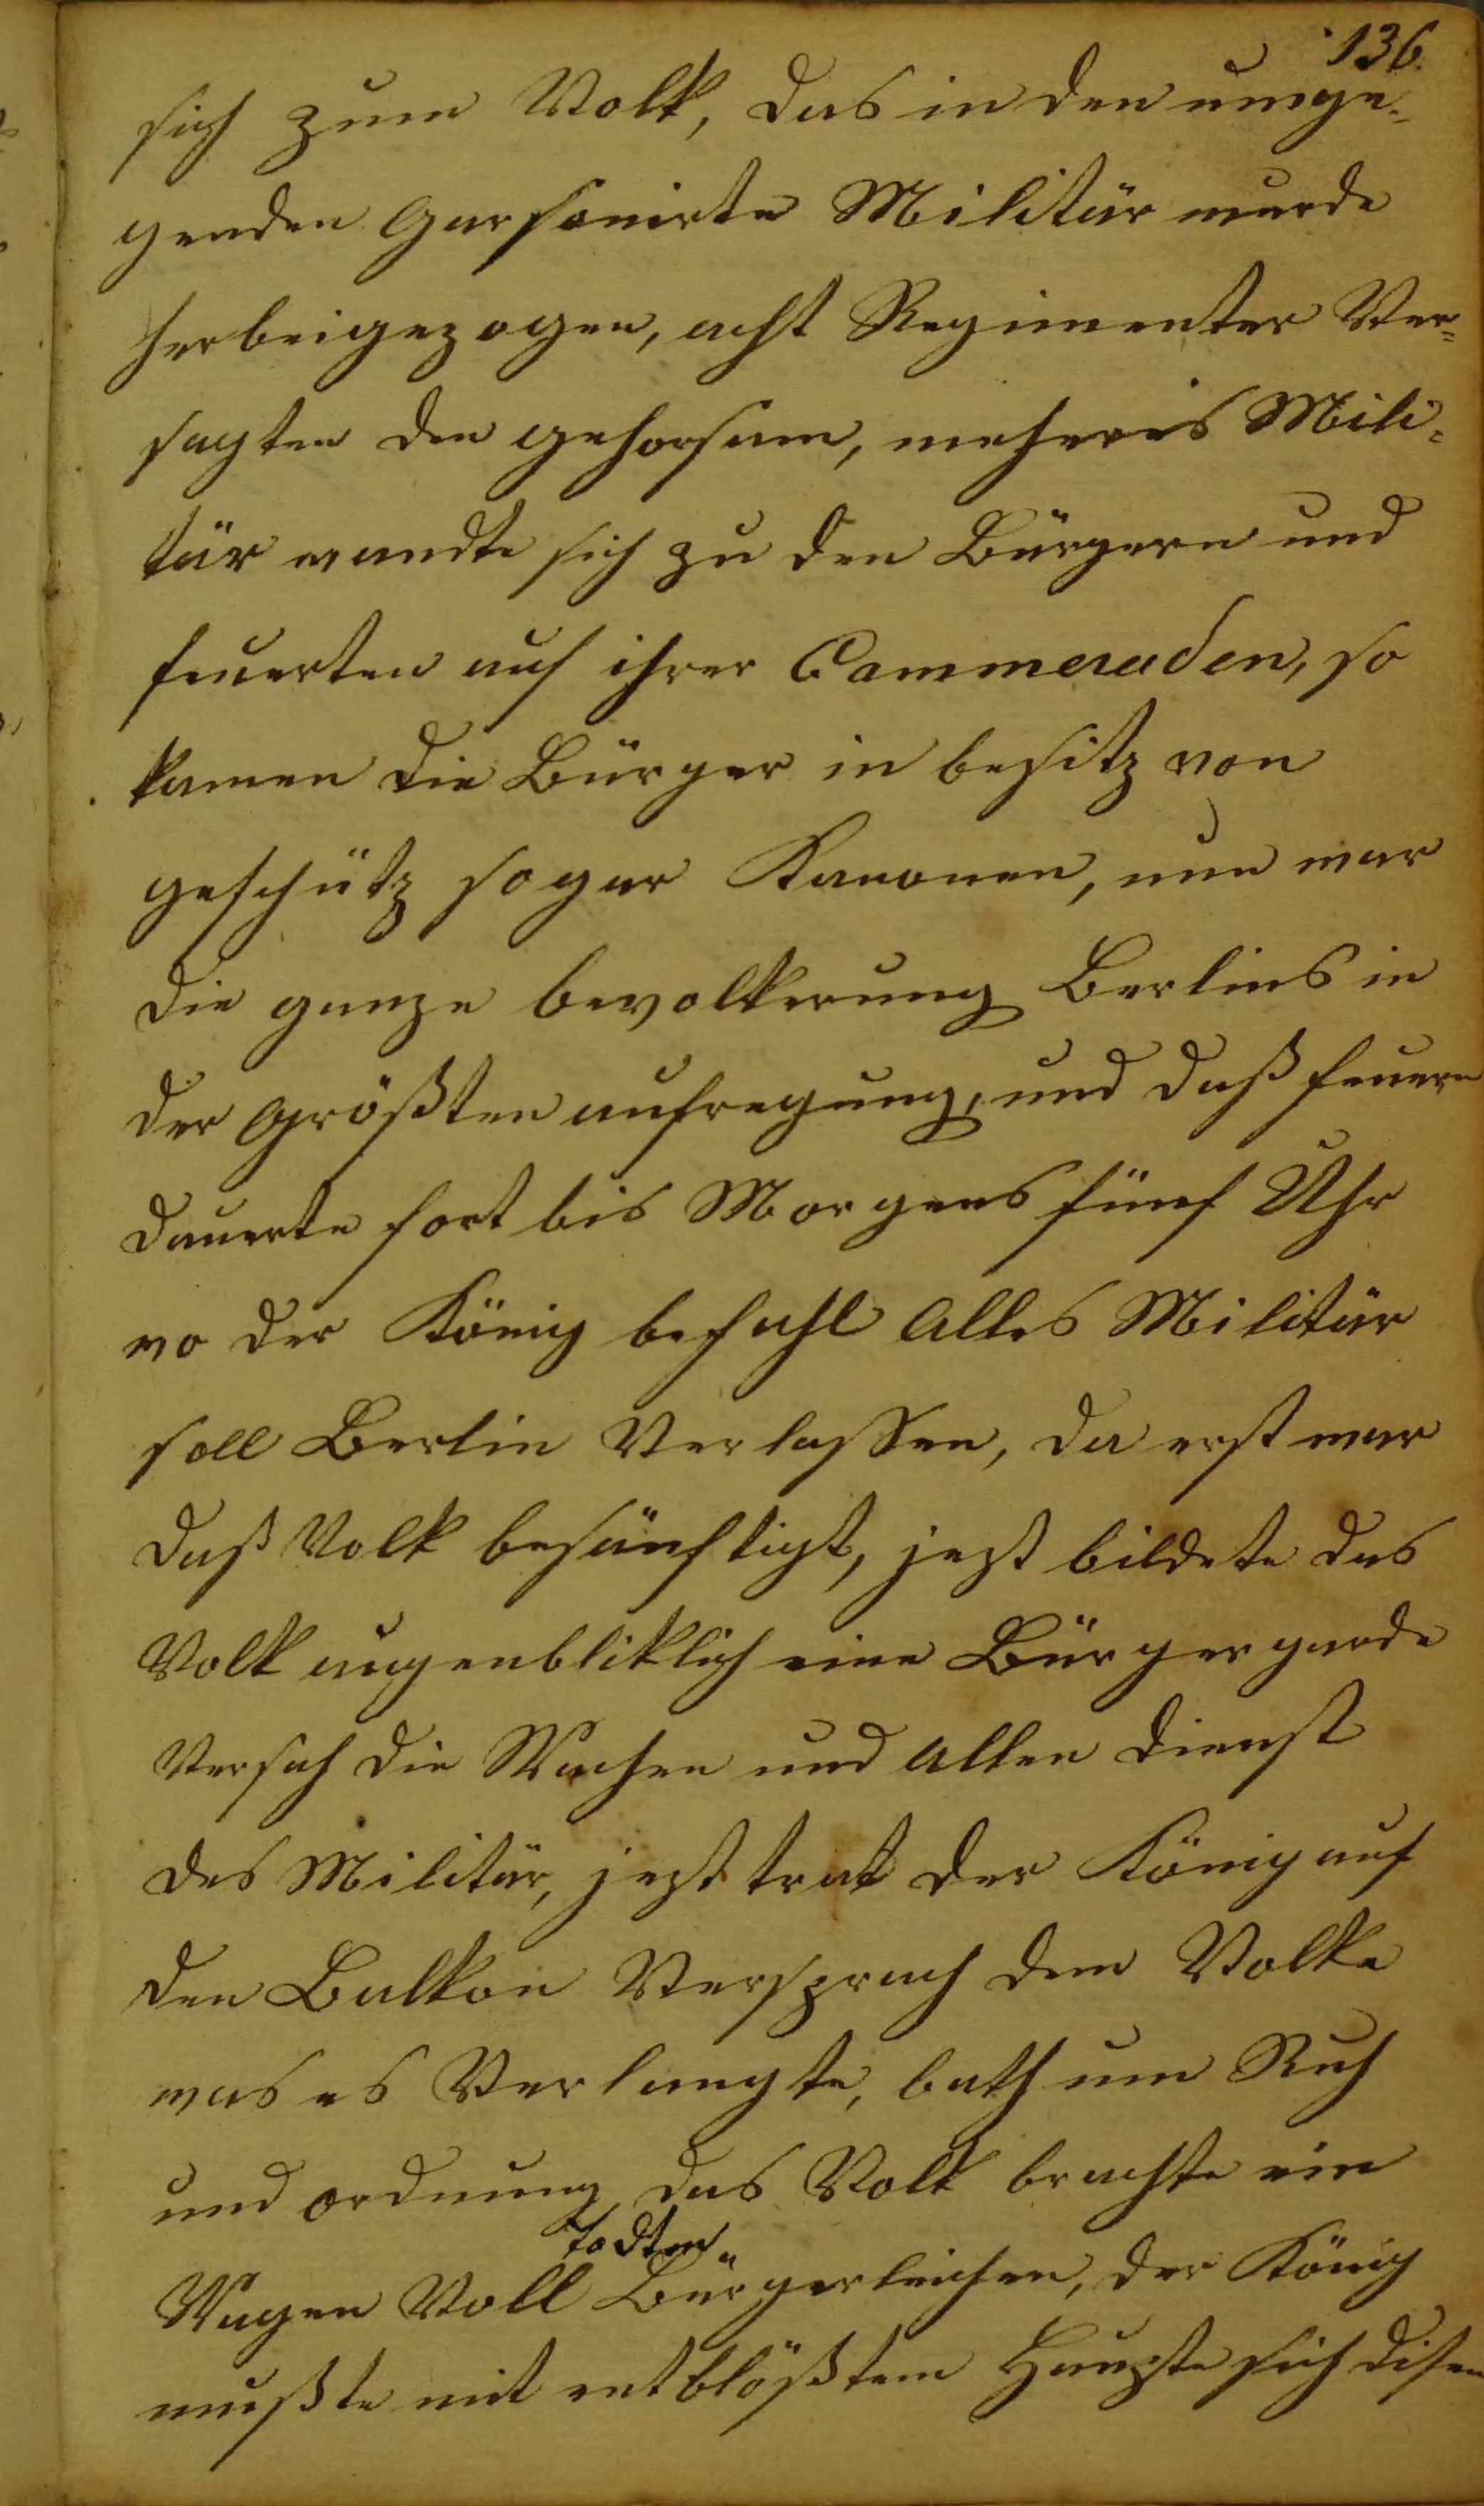 136.
sich zum Volk, das in den umge-
genden Garsonirte Militär wurde
herbeigezogen, acht Regimenter Ver=
sagten den gehorsam, mehreres Mili=
tär wandte sich zu den Bürgern und
feuerten auf ihrer Cammeraden, so
kamen die Bürger in besitz von
geschütz sogar Kanonen, nun war
die ganze bevolkerung Berlins in
der Größten aufregung, und daß feuern
dauerte fort bis Morgens fünf Uhr
wo der König befahl Alles Militär
soll Berlin Verlassen, da erst war
daß Volk besänftigt, jezt bildete das
Volk augenbliklich eine Bürgergarde
Versah die Wachen und Allen dienst
des Militär, jezt trat der König auf
den Balkon Versprach dem Volke
was es Verlangte, bath um Ruh
und ordnung, das Volk brachte ein
Wagen Voll todten Bürgerleichen, der König
mußte mit entblößtem Haupte sich disen